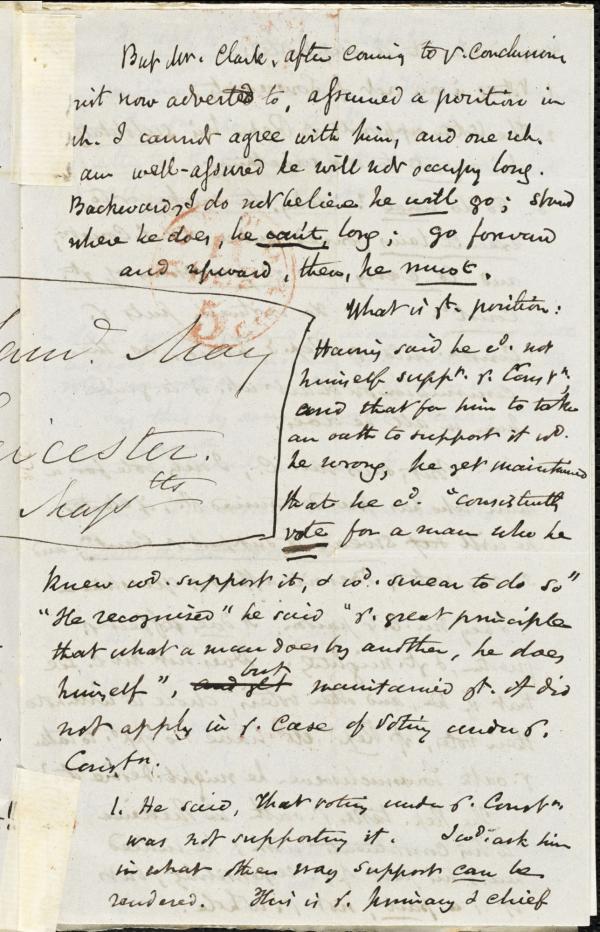 But Mr. Clark, after coming to y. conclusion
just now adverted to, assumed a position in
wh. I cannot agree with him, and one wh. I
am well-assured he will not occupy long.
Backward, I do not believe he will go; stand
where he does, he can't, long; go forward
and upward, then, he must.
What is yt. position:
Having said he cd. not
himself suppt. y. Constn,
and that for him to take
an oath to support it wd.
be wrong, he yet maintained
that he cd. "consistently
vote for a man who he
knew wd. support it, & wd. swear to do so"
"He recognised" he said "y. great principle
that what a man does by another, he does
himself", and yet but maintained yt. it did
not apply in y. case of voting under y.
Constn.
1. He said, that voting under y. Constn
was not supporting it. I wd. ask him
in what other way support can be
rendered. This is y. primary & chief
Saml. May
Leicester.
Masstts
5